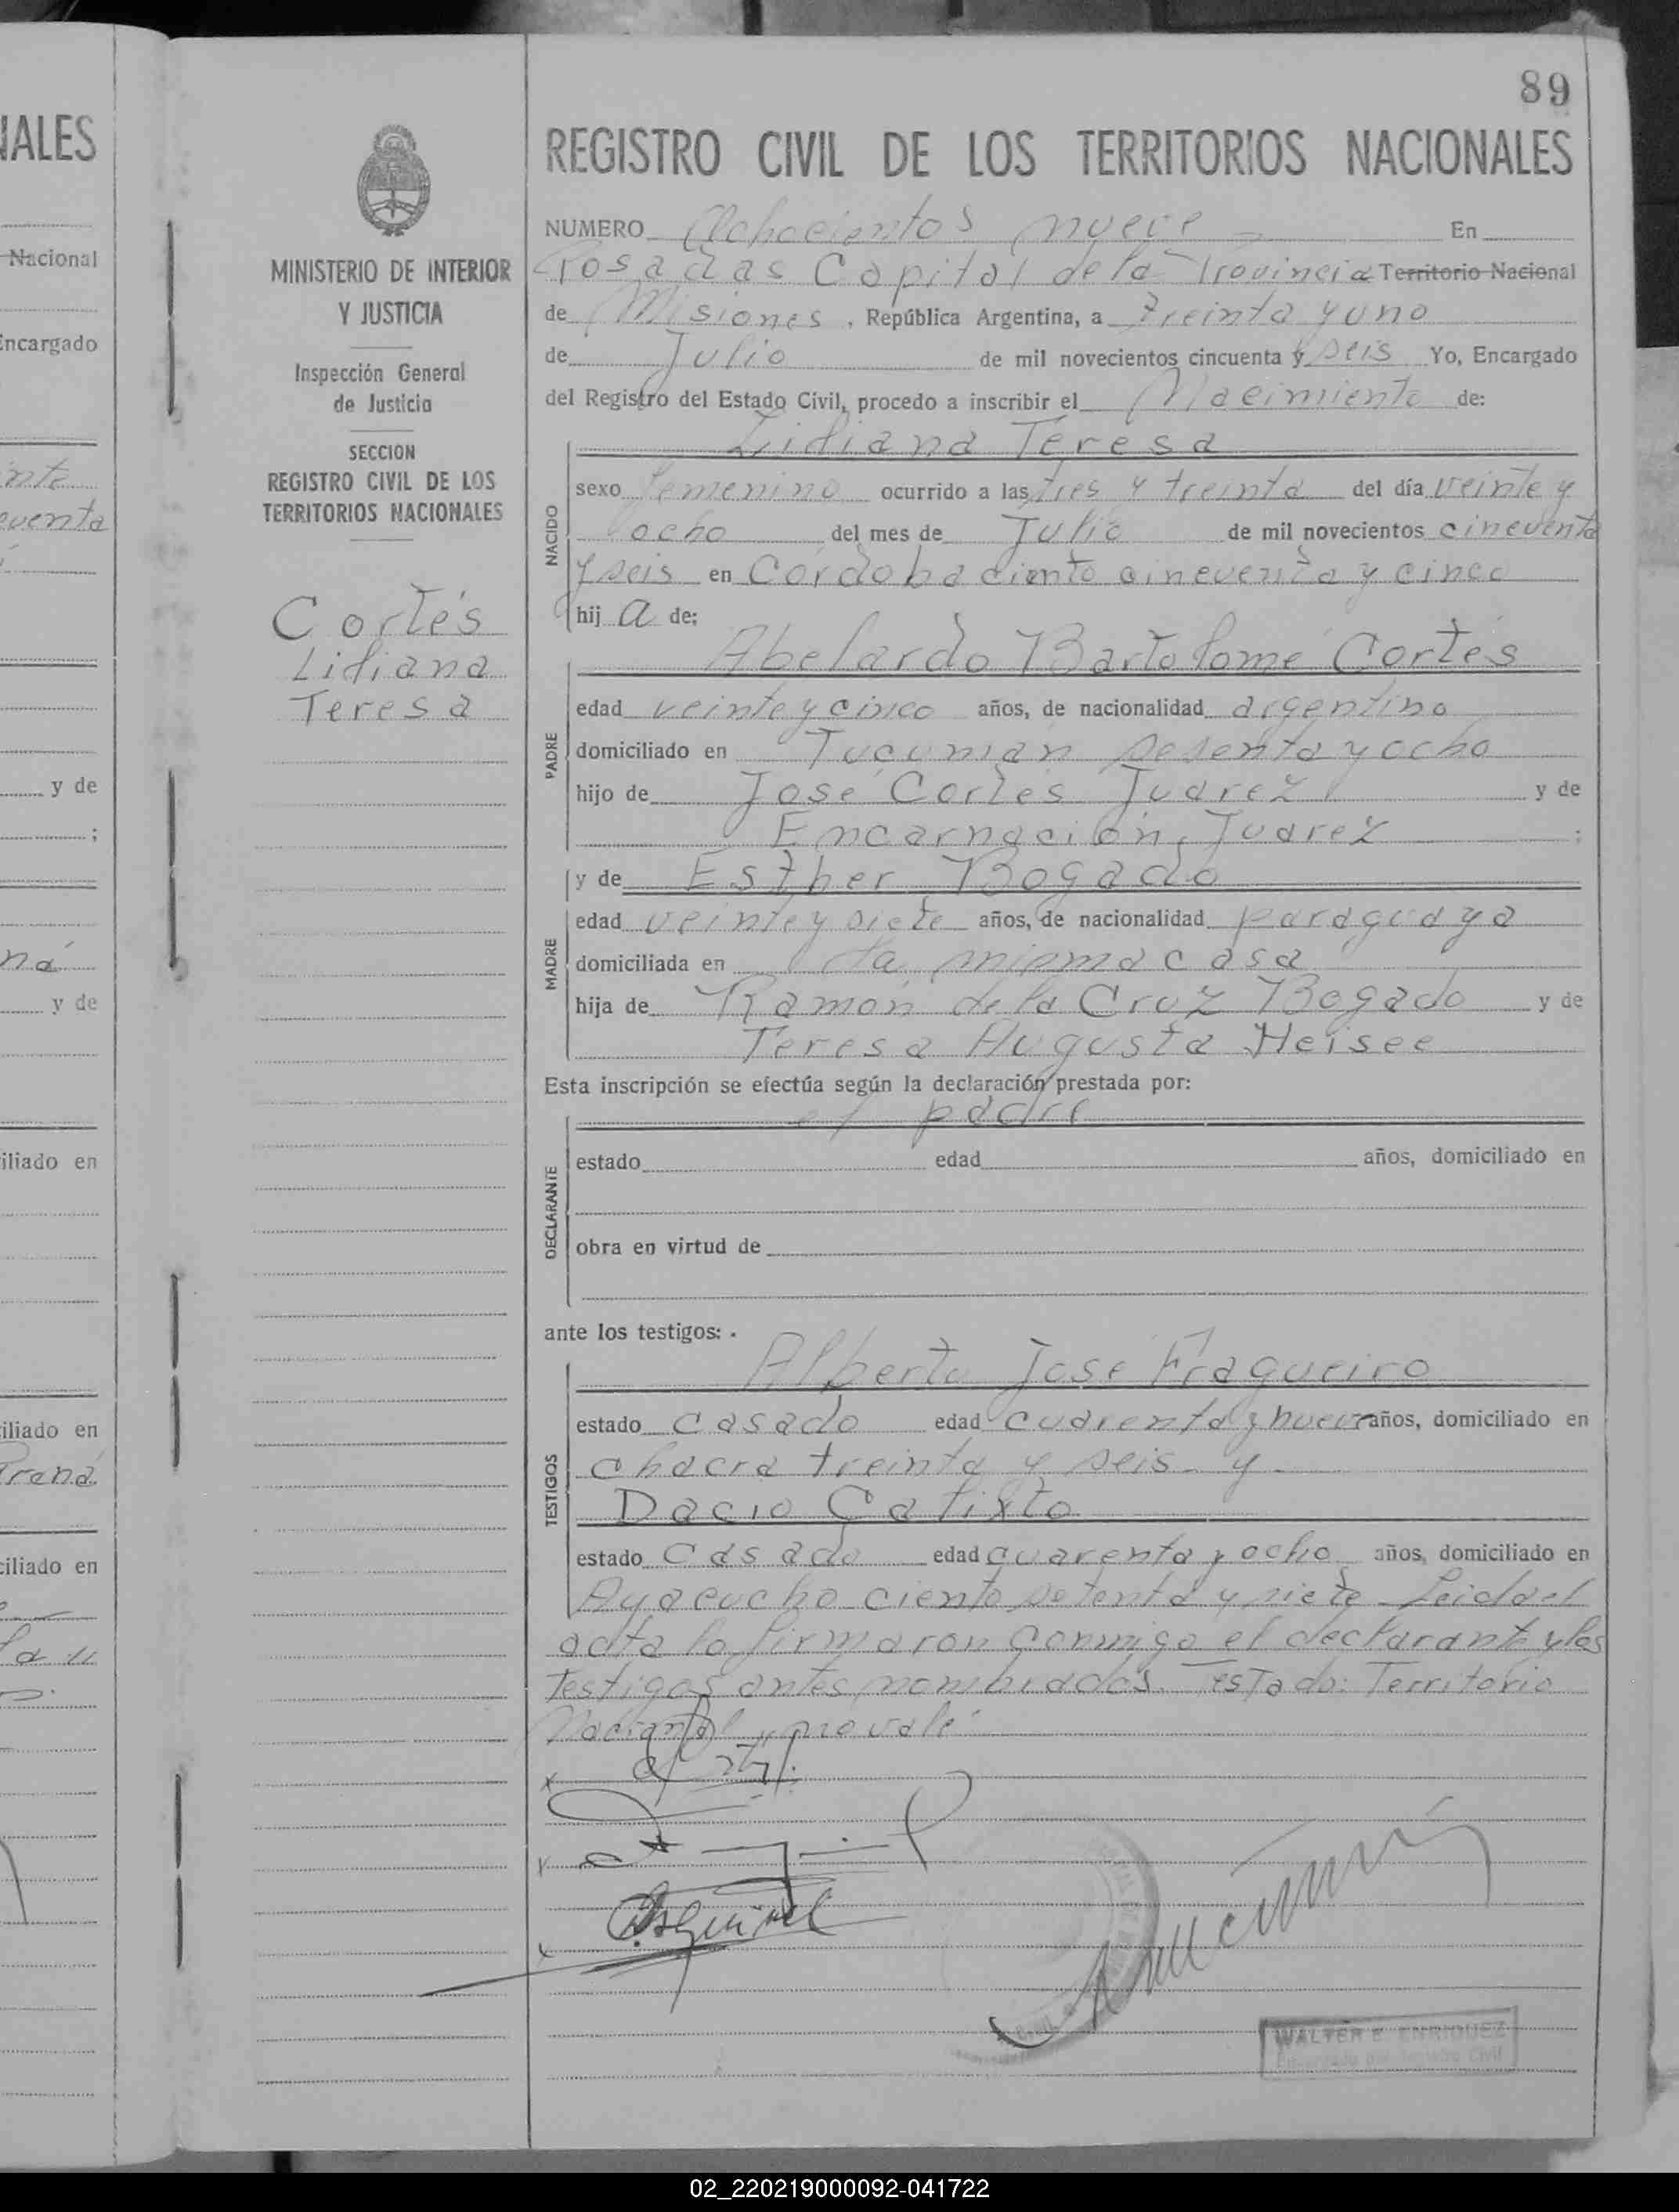 89
NALES
Nacional
Encargado
y de
;
y de
iliado en
ciliado en
ciliado en
MINISTERIO DE INTERIOR
Y JUSTICIA
Inspección General
de Justicia
SECCION
REGISTRO CIVIL DE LOS
TERRITORIOS NACIONALES
Cortés
Liliana
Teresa
REGISTRO CIVIL DE LOS TERRITORIOS NACIONALES
NUMERO Ochocientos nueve En
Posadas Capital de la Provincia Territorio Nacional
de Misiones, República Argentina, a Treinta y uno
de Julio de mil novecientos cincuenta y seis Yo, Encargado
del Registro del Estado Civil, procedo a inscribir el Nacimiento de:
Liliana Teresa
NACIDO
sexo femenino ocurrido a las tres y treinta del día veinte y
ocho del mes de Julio de mil novecientos cincuenta
y seis en Córdoba ciento cincuenta y cinco
hij a de:
Abelardo Bartolomé Cortés
PADRE
edad veinte y cinco años, de nacionalidad argentino
domiciliado en Tucumán sesenta y ocho
hijo de José Cortés Juarez y de
Encarnación Juarez ;
y de Esther Bogado
MADRE
edad veinte y siete años, de nacionalidad paraguaya
domiciliada en la misma casa
hija de Ramón de la Cruz Bogado y de
Teresa Augusta Heisee
Esta inscripción se efectúa según la declaración prestada por:
el padre
DECLARANTE
estado edad años, domiciliado en
obra en virtud de
ante los testigos: .
Alberto José Fragueiro
TESTIGOS
estado casado edad cuarenta y nueve años, domiciliado en
chacra treinta y seis - y -
Dacio Calixto
estado casado edad cuarenta y ocho años, domiciliado en
Ayacucho ciento setenta y siete - Leida el
acta la firmaron conmigo el declarante y los
testigos antes nombrados. Testado: Territorio
Nacional, no vale.
WALTER E. ENRIQUEZ
Encargado del Registro Civil
02_220219000092-041722